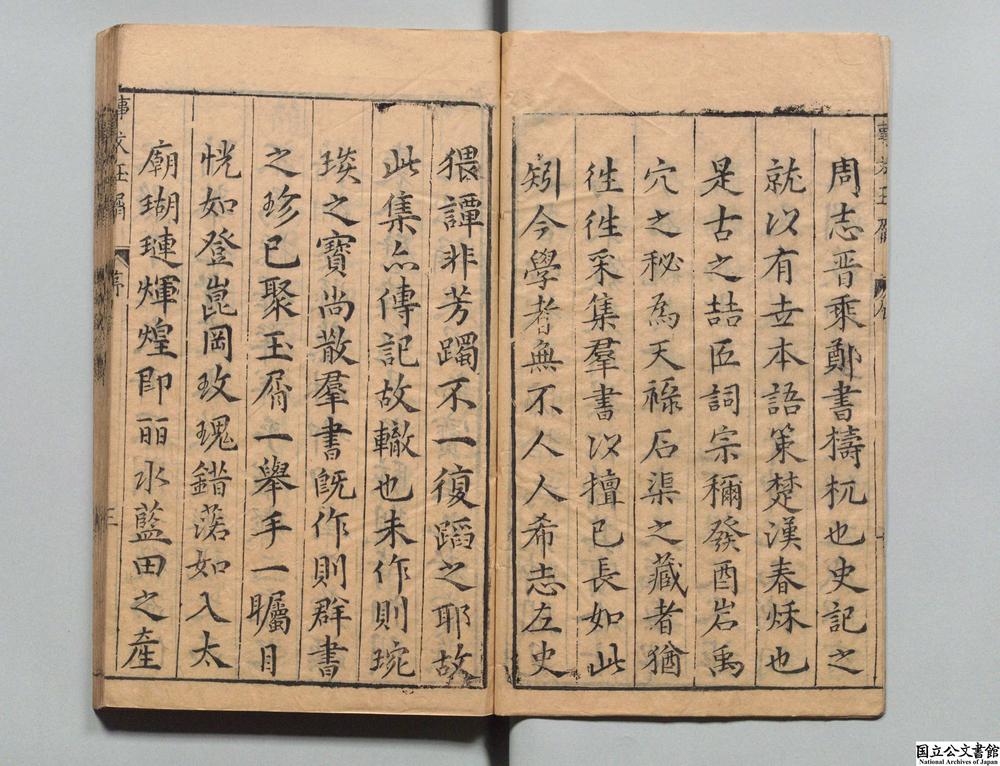 周志晋乘鄭書檮杌也史記之
就以有世本語策楚漢春秌也
是古之喆匠詞宗稱發酉岩禹
穴之秘為天祿石渠之藏者猶
徃徃采集羣書以擅已長如此
矧今學者無不人人希志左史
猥譚非芳躅不一復蹈之耶故
此集亦傳記故轍也未作則琬
琰之寶尚散羣書旣作則群書
之珍已聚玉屑一舉手一矚目
恍如登崑岡玫瑰錯落如入太
廟瑚璉煇煌即丽水藍田之産
事文玉屑
序
三
国立公文書館
National Archives of Japan